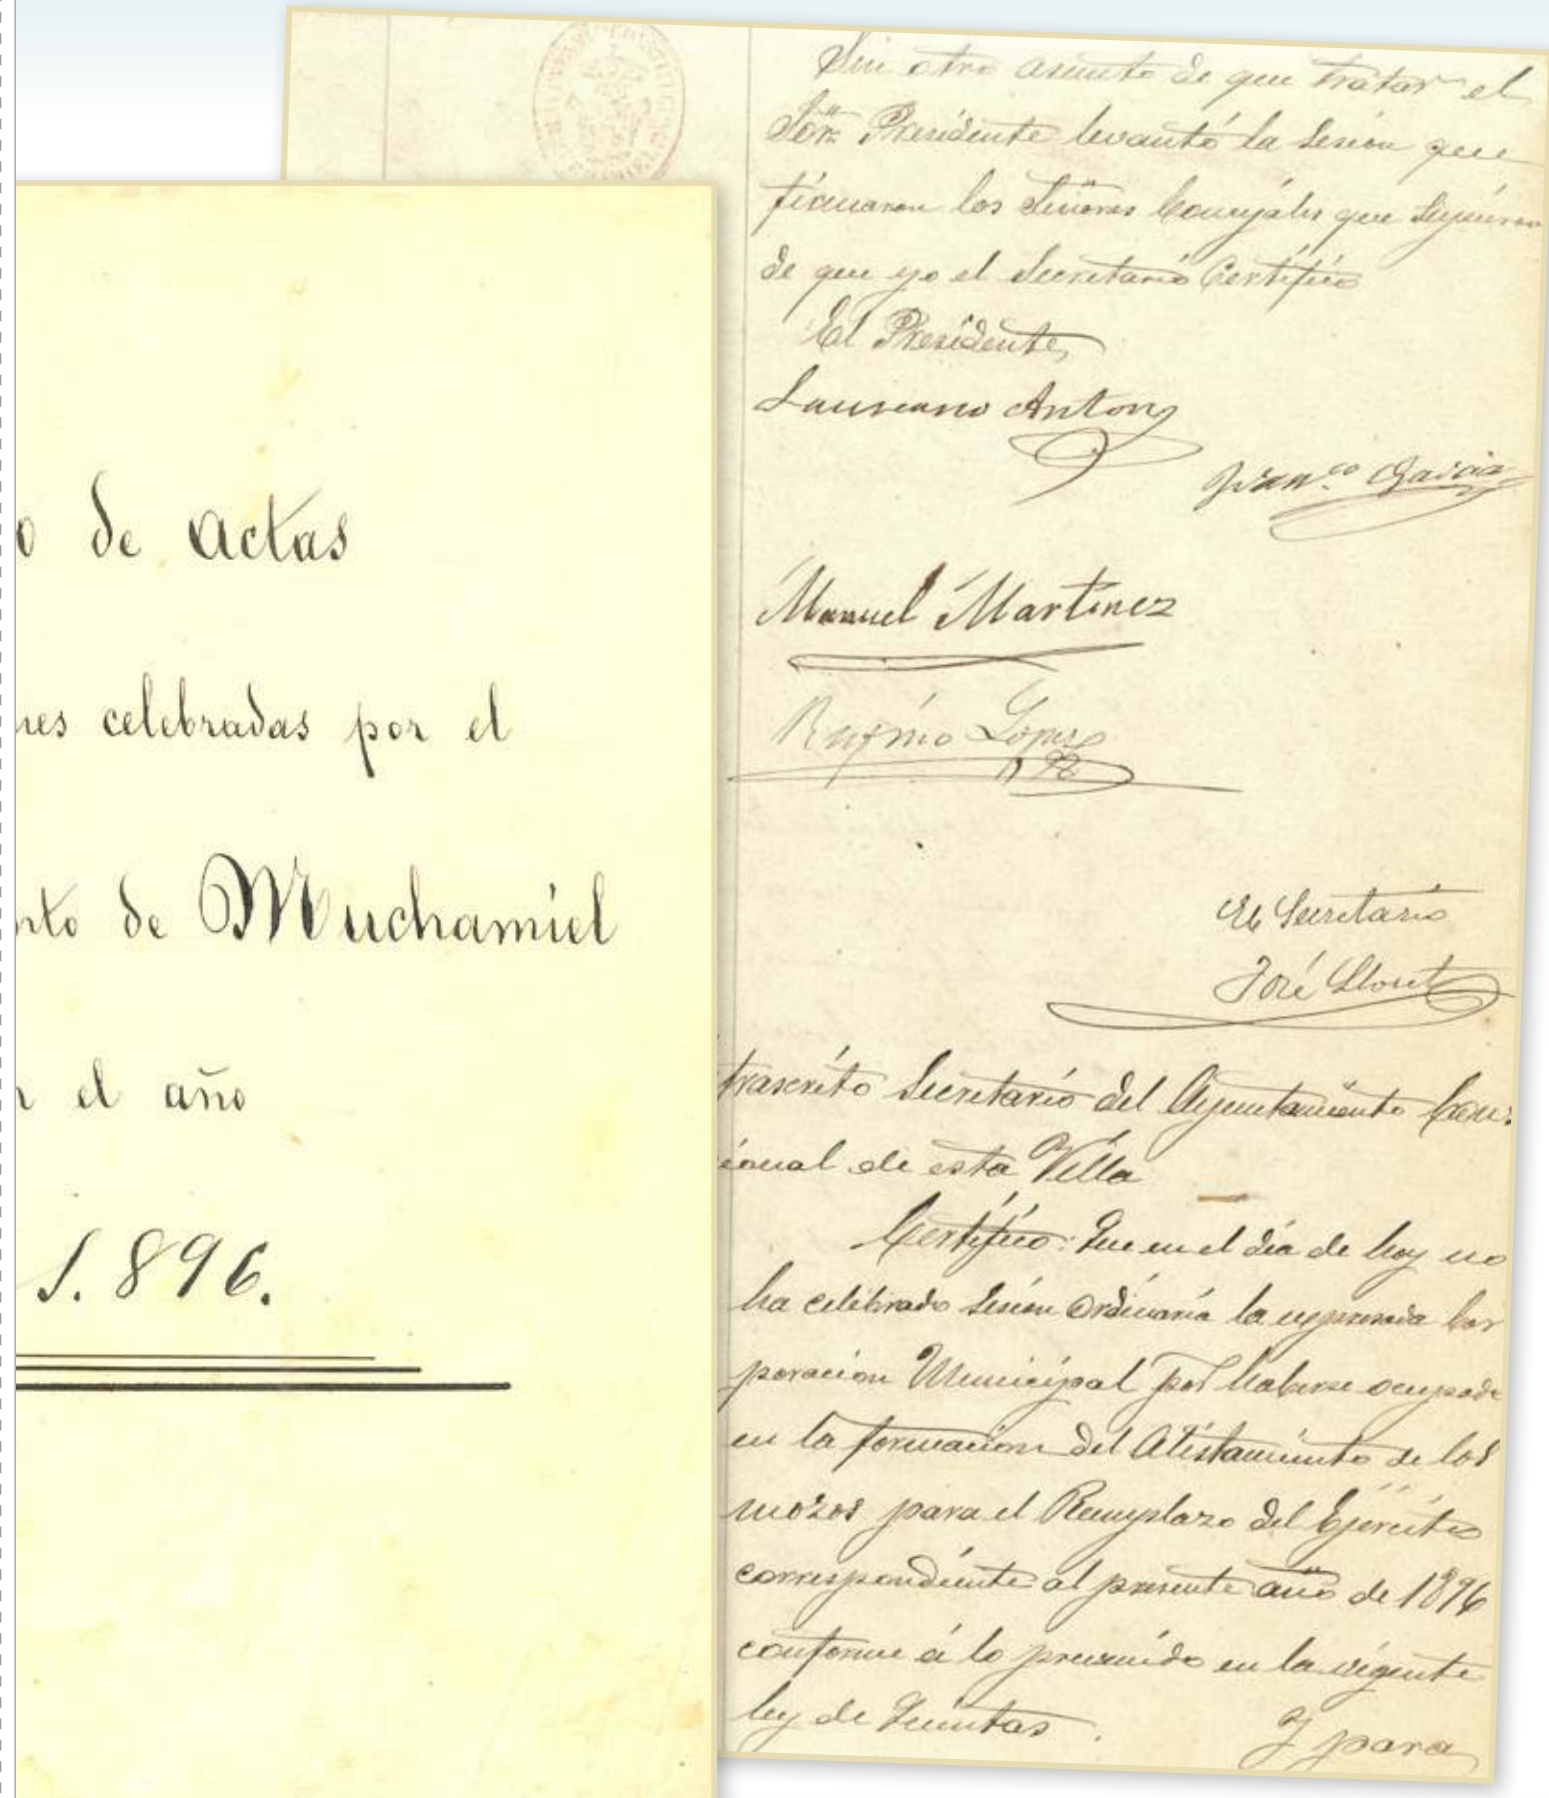 o de Actas
nes celebradas por el
nto de Muchamiel
n el año
1.896.
Sin otro asunto de que tratar el
Sor. Presidente levantó la Sesion que
firmaron los Señores Concejales que supieron
de que yo el Secretario Certifico
El Presidente
Laureano Anton
Franco. Garcia
Manuel Martinez
Rufino Lopez
El Secretario
José Lloret
frascrito Secretario del Ayuntamiento Cons
cional de esta Villa
Certifico: Que en el dia de hoy no
ha celebrado Sesion Ordinaria la expresada Cor
poracion Municipal por haberse ocupado
en la formacion del Alistamiento de los
mozos para el Remplazo del Ejército
correspondiente al presente año de 1896
conforme á lo prevenido en la vigente
ley de Quintas. Y para